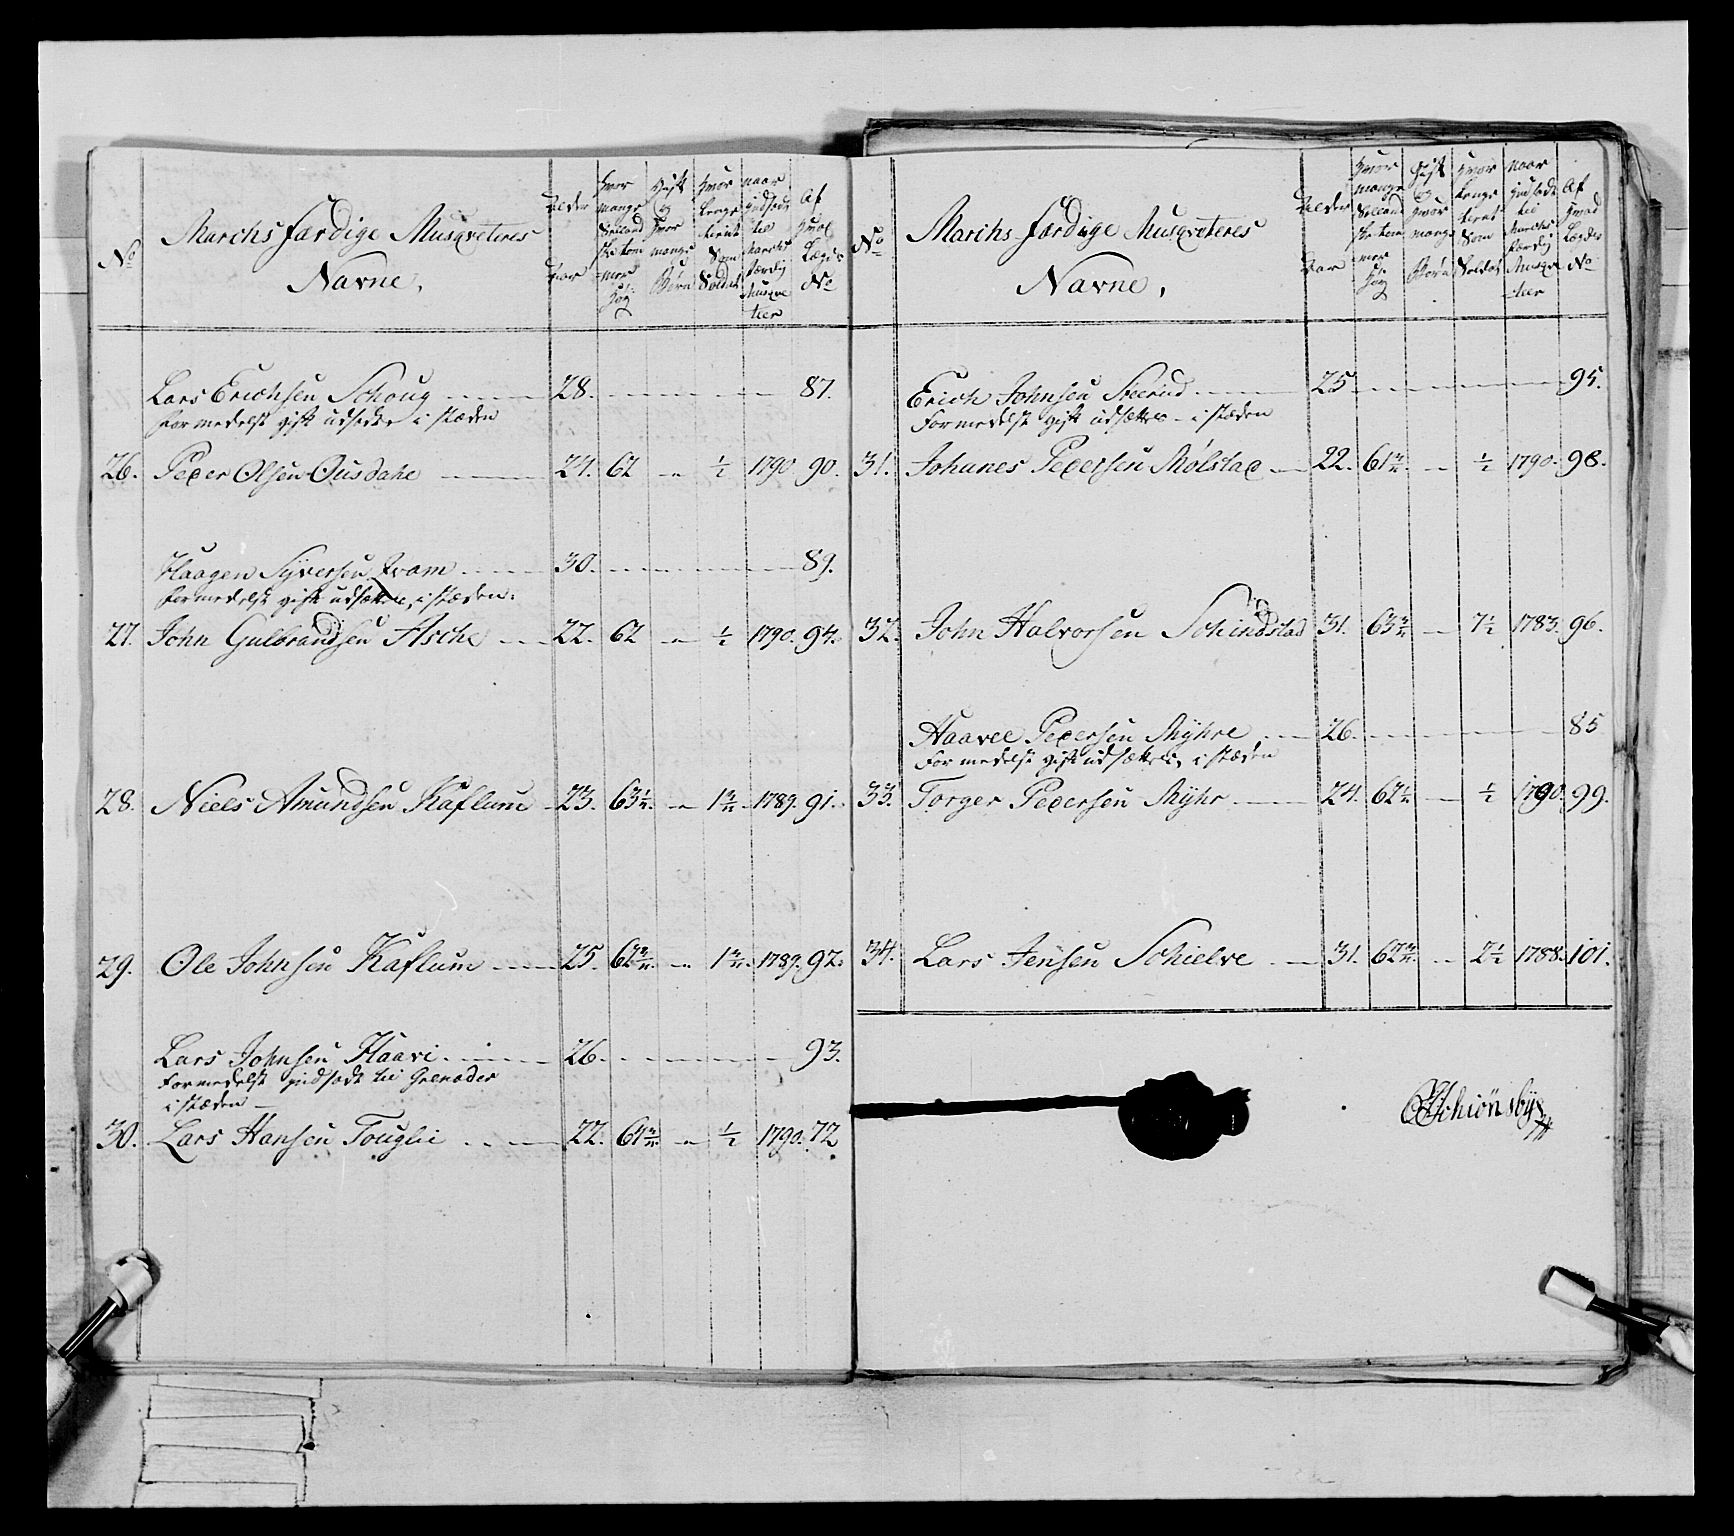 No
Marchs færdige Musqveteres
Navne,
Alder
Aar
Hvor mange Siellandske tommer høy
Gift og Hvor mange Børn
Hvor lenge tient Som Soldat
naar Indsadt til Marchs færdig Musqveteer
Af Hvad Lægder No
Lars Erichsen Schoug 28. 87.
formedelst gift udsedte i stæden
26. Peder Olsen Ousdahl 24. 62 „ ½ 1790 90.
Haagen Syversen Tvam 30. 89.
formedelst gift udsættes, i stæden.
27. John Gulbrandsen Asche 22. 62 „ ½ 1790. 94.
28. Niels Amundsen Kaflum 23. 63½. „ 1¾. 1789. 91.
29. Ole Johnsen Kaflum 25. 62¾. „ 1¾. 1789. 92.
Lars Johnsen Haavi 26. 93.
Formedelst indsadt til Grenader
i stæden
30. Lars Hansen Touglie 22. 61¾. „ ½ 1790. 72.
No
Marchs færdige Musqveteres
Navne,
Alder
Aar
Hvor mange Siellandske tommer Høy
Gift og Hvor mange Børn
Hvor lenge tient Som Soldat
naar Indsadt til Marchs færdig Musqveteer
Af Hvad Lægder No
Erich Johnsen Steerud 25 95.
Formedelst gift udsættes i stæden
31. Johanes Pedersen Mølstad 22. 61¾. „ ½ 1790. 98.
32. John Halvorsen Schindstad 31. 63¾ „ 7½ 1783. 96.
Haavel Pedersen Myhre 26. 85
Formedelst gift udsættes, i stæden
33. Torger Pedersen Myhr 24. 62½ „ ½ 1790. 99.
34. Lars Jensen Schielve 31. 62¾. „ 2½ 1788. 101.
Schiønsbye